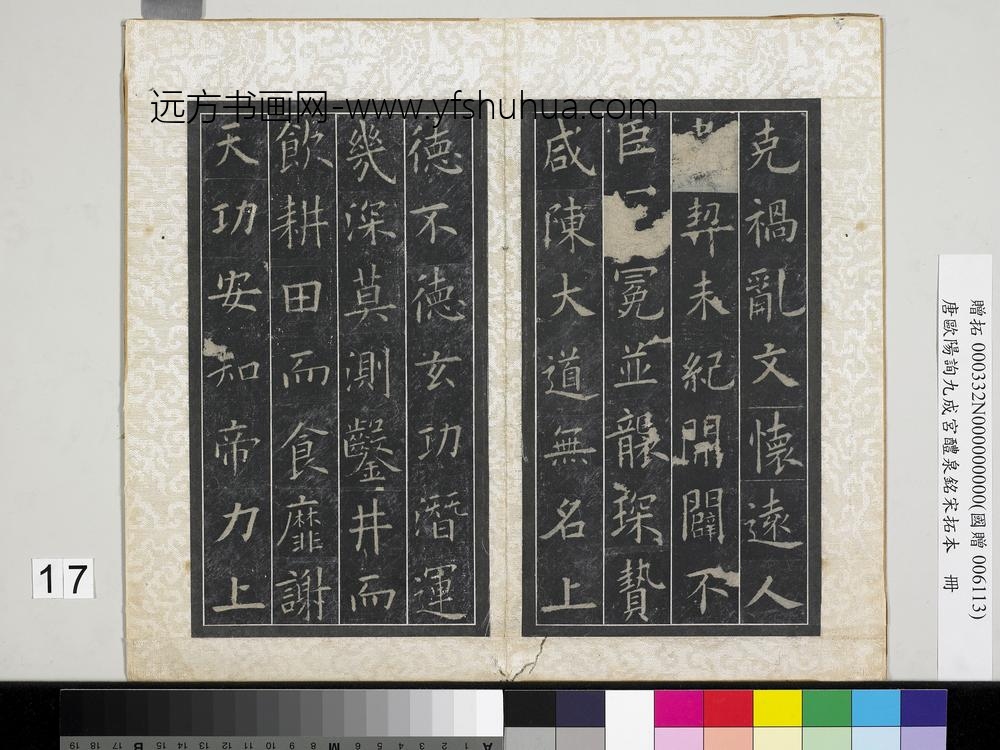 远方书画网-www.yfshuhua.com
克禍亂文懷遠人
契未紀開闢不
臣冕並襲琛贄
咸陳大道無名上
德不德玄功潛運
幾深莫測鑿井而
飲耕田而食靡謝
天功安知帝力上
贈拓 000332N000000000(國贈 006113)
唐歐陽詢九成宮醴泉銘宋拓本 冊
17